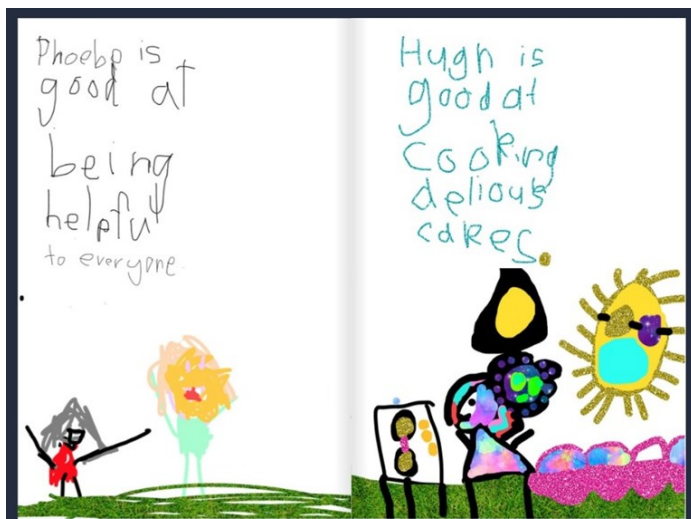 Phoebe is
good at
being
helpful
to everyone.
Hugh is
good at
cooking
delious
cakes.